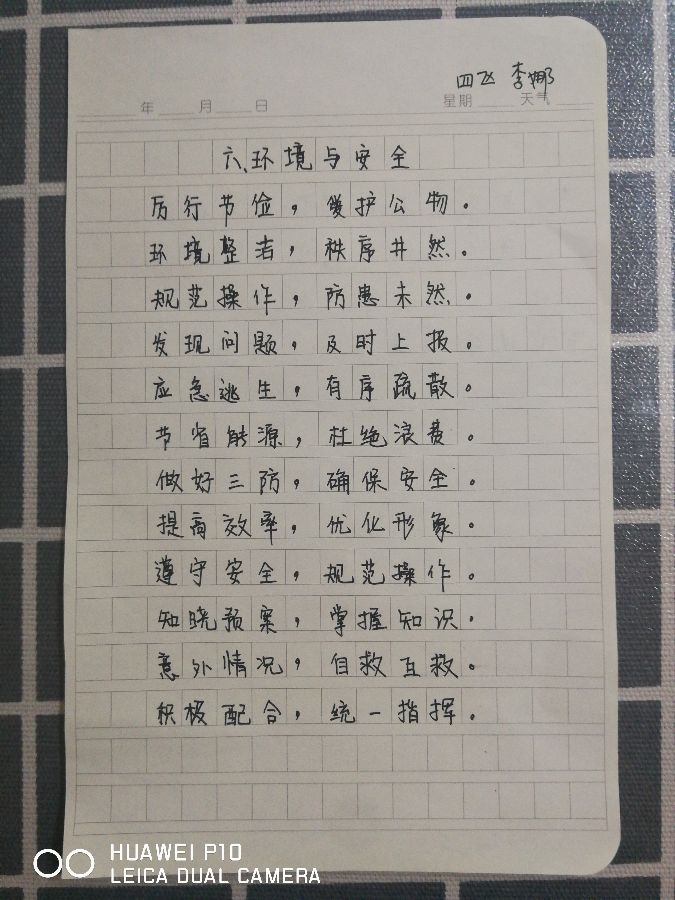 四飞 李娜
年 月 日 星期 天气
六、环境与安全
厉行节俭，爱护公物。
环境整洁，秩序井然。
规范操作，防患未然。
发现问题，及时上报。
应急逃生，有序疏散。
节省能源，杜绝浪费。
做好三防，确保安全。
提高效率，优化形象。
遵守安全，规范操作。
知晓预案，掌握知识.
意外情况，自救互救。
积极配合，统一指挥。
HUAWEI P10
LEICA DUAL CAMERA